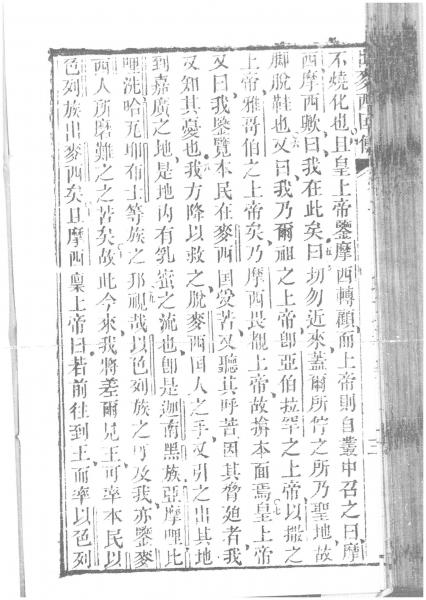 麥西國傳
不燒化也且皇上帝鑒摩西轉顧而上帝則自叢中召之曰摩
西摩西歟曰我在此矣曰切勿近來蓋爾所倚之所乃聖地故
脚脫鞋也又曰我乃爾祖之上帝卽亞伯拉罕之上帝以撒之
上帝雅哥伯之上帝矣乃摩西畏覩上帝故揜本面焉皇上帝
又曰我鑒覽本民在麥西國受苦又聽其呼苦因其脅廹者我
又知其憂也我方降以救之脫麥西國人之手又引之出其地
到嘉廣之地是地內有乳蜜之流也卽是迦南黑族亞摩哩比
哩洗哈瓦耶布士等族之邦視哉以色列族之呼及我亦鑒麥
西人所磨難之之苦矣故此今來我將差爾見王可率本民以
色列族出麥西矣且摩西稟上帝曰若前往到王而率以色列